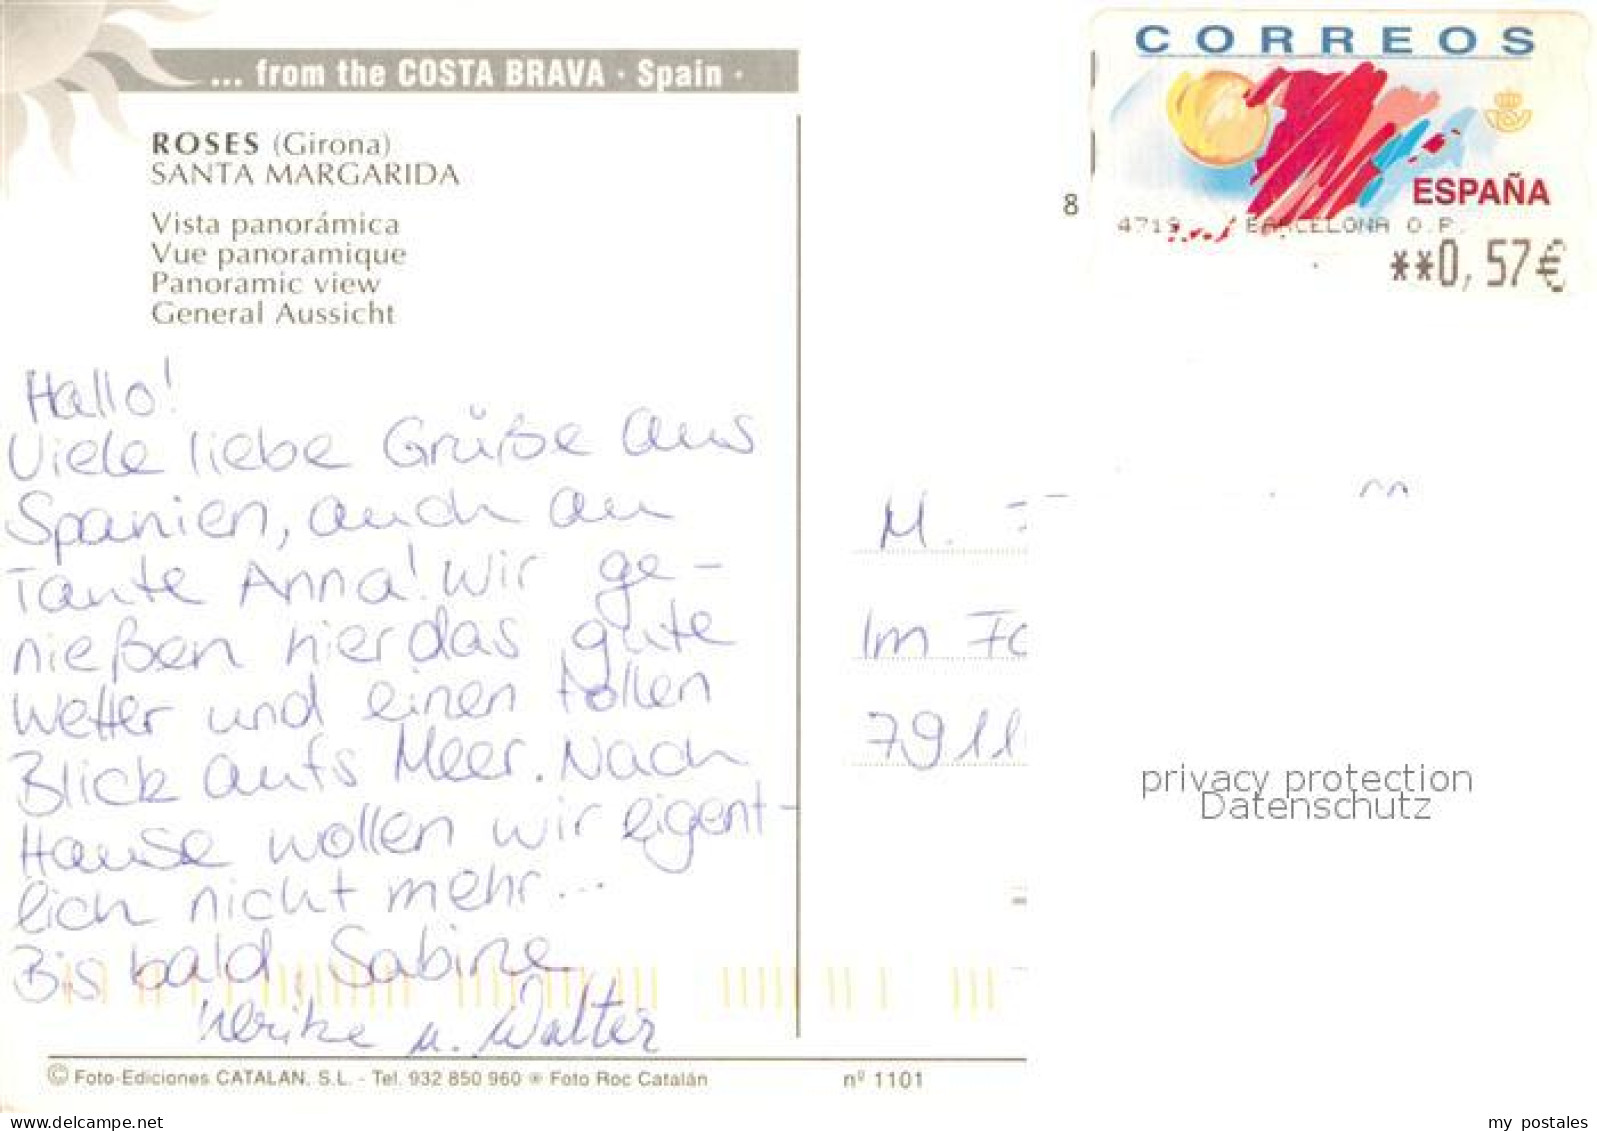 ... from the COSTA BRAVA · Spain ·
ROSES (Girona)
SANTA MARGARIDA
Vista panorámica
Vue panoramique
Panoramic view
General Aussicht
Hallo!
Viele liebe Grüße aus
Spanien, auch an
Tante Anna! Wir ge-
nießen hier das gute
Wetter und einen tollen
Blick aufs Meer. Nach
Hause wollen wir eigent-
lich nicht mehr...
Bis bald, Sabine
Ulrike u. Walter
© Foto-Ediciones CATALAN, S.L. - Tel. 932 850 960 * Foto Roc Catalán
nº 1101
CORREOS
ESPAÑA
8
4719 BARCELONA O.P.
**0,57€
M.
Im Fo
7911
privacy protection
Datenschutz
delcampe.net
my_postales